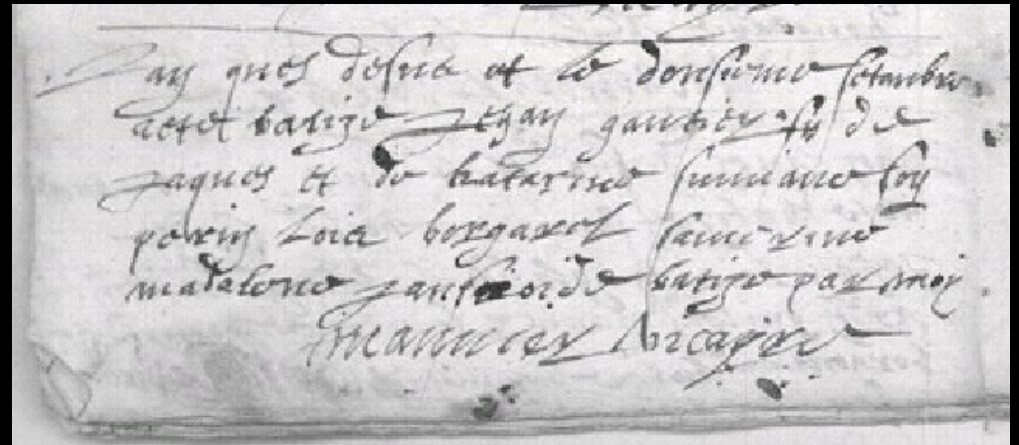 L'an ques desus et le dousieme setanbre
a etet batize Jehan gautier fis de
Jaques et de katarine simiane son
perin Lois borgarel sa merine
madalene batize par moy
meannier vicaire